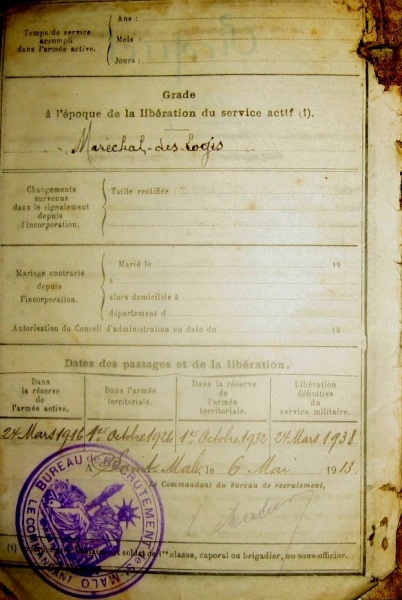 Temps de service
accompli
dans l'armée active.
Ans :
Mois :
Jours :
Grade
à l'époque de la libération du service actif (1).
Maréchal-des-logis
Changements
survenus
dans le signalement
depuis
l'incorporation.
Taille rectifiée :
Mariage contracté
depuis
l'incorporation.
Marié le 19
à
alors domiciliée à
département d
Autorisation du Conseil d'administration en date du 19
Dates des passages et de la libération.
Dans
la réserve
de
l'armée active.
Dans l'armée
territoriale.
Dans la réserve
de
l'armée
territoriale.
Libération
définitive
du
service militaire.
24 Mars 1916
1er Octobre 1926
1er Octobre 1932
24 Mars 1938
A Saint-Malo, le 6 Mai 1913.
Commandant du bureau de recrutement,
BUREAU DE RECRUTEMENT DE ST-MALO
(1) soldat de 1re classe, caporal ou brigadier, ou sous-officier.